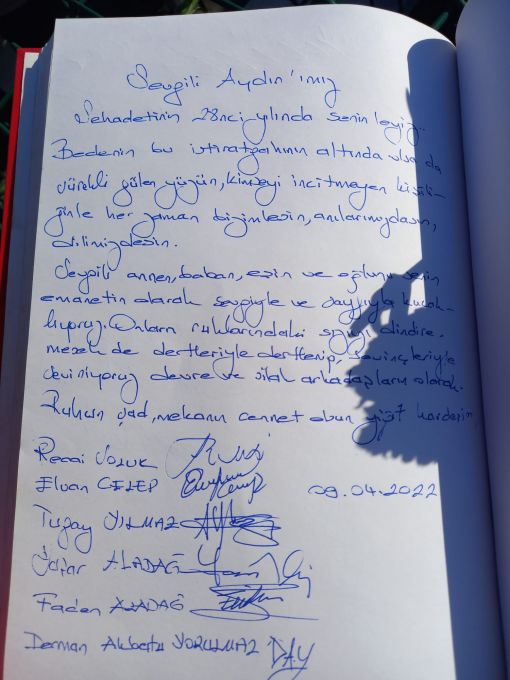 Sevgili Aydın'ımız
Şehadetinin 28nci yılında seninleyiz.
Bedenin bu istiratgahının altında olsa da
sürekli gülen yüzün, kimseyi incitmeyen kişili-
ğinle her zaman bizimlesin, anılarımızdasın,
dilimizdesin.
Sevgili annen, baban, eşin ve oğlunu senin
emanetin olarak sevgiyle ve saygıyla kucak-
lıyoruz. Onların ruhlarındaki sızıyı dindire-
mesek de dertleriyle dertlenip, sevinçleriyle
seviniyoruz devre ve silah arkadaşların olarak.
Ruhun şad, mekanın cennet olsun yiğit kardeşim
Recai
Elvan 09.04.2022
Tugay YILMAZ
Yaşar ALADAĞ
ALADAĞ
Derman YORULMAZ DAY